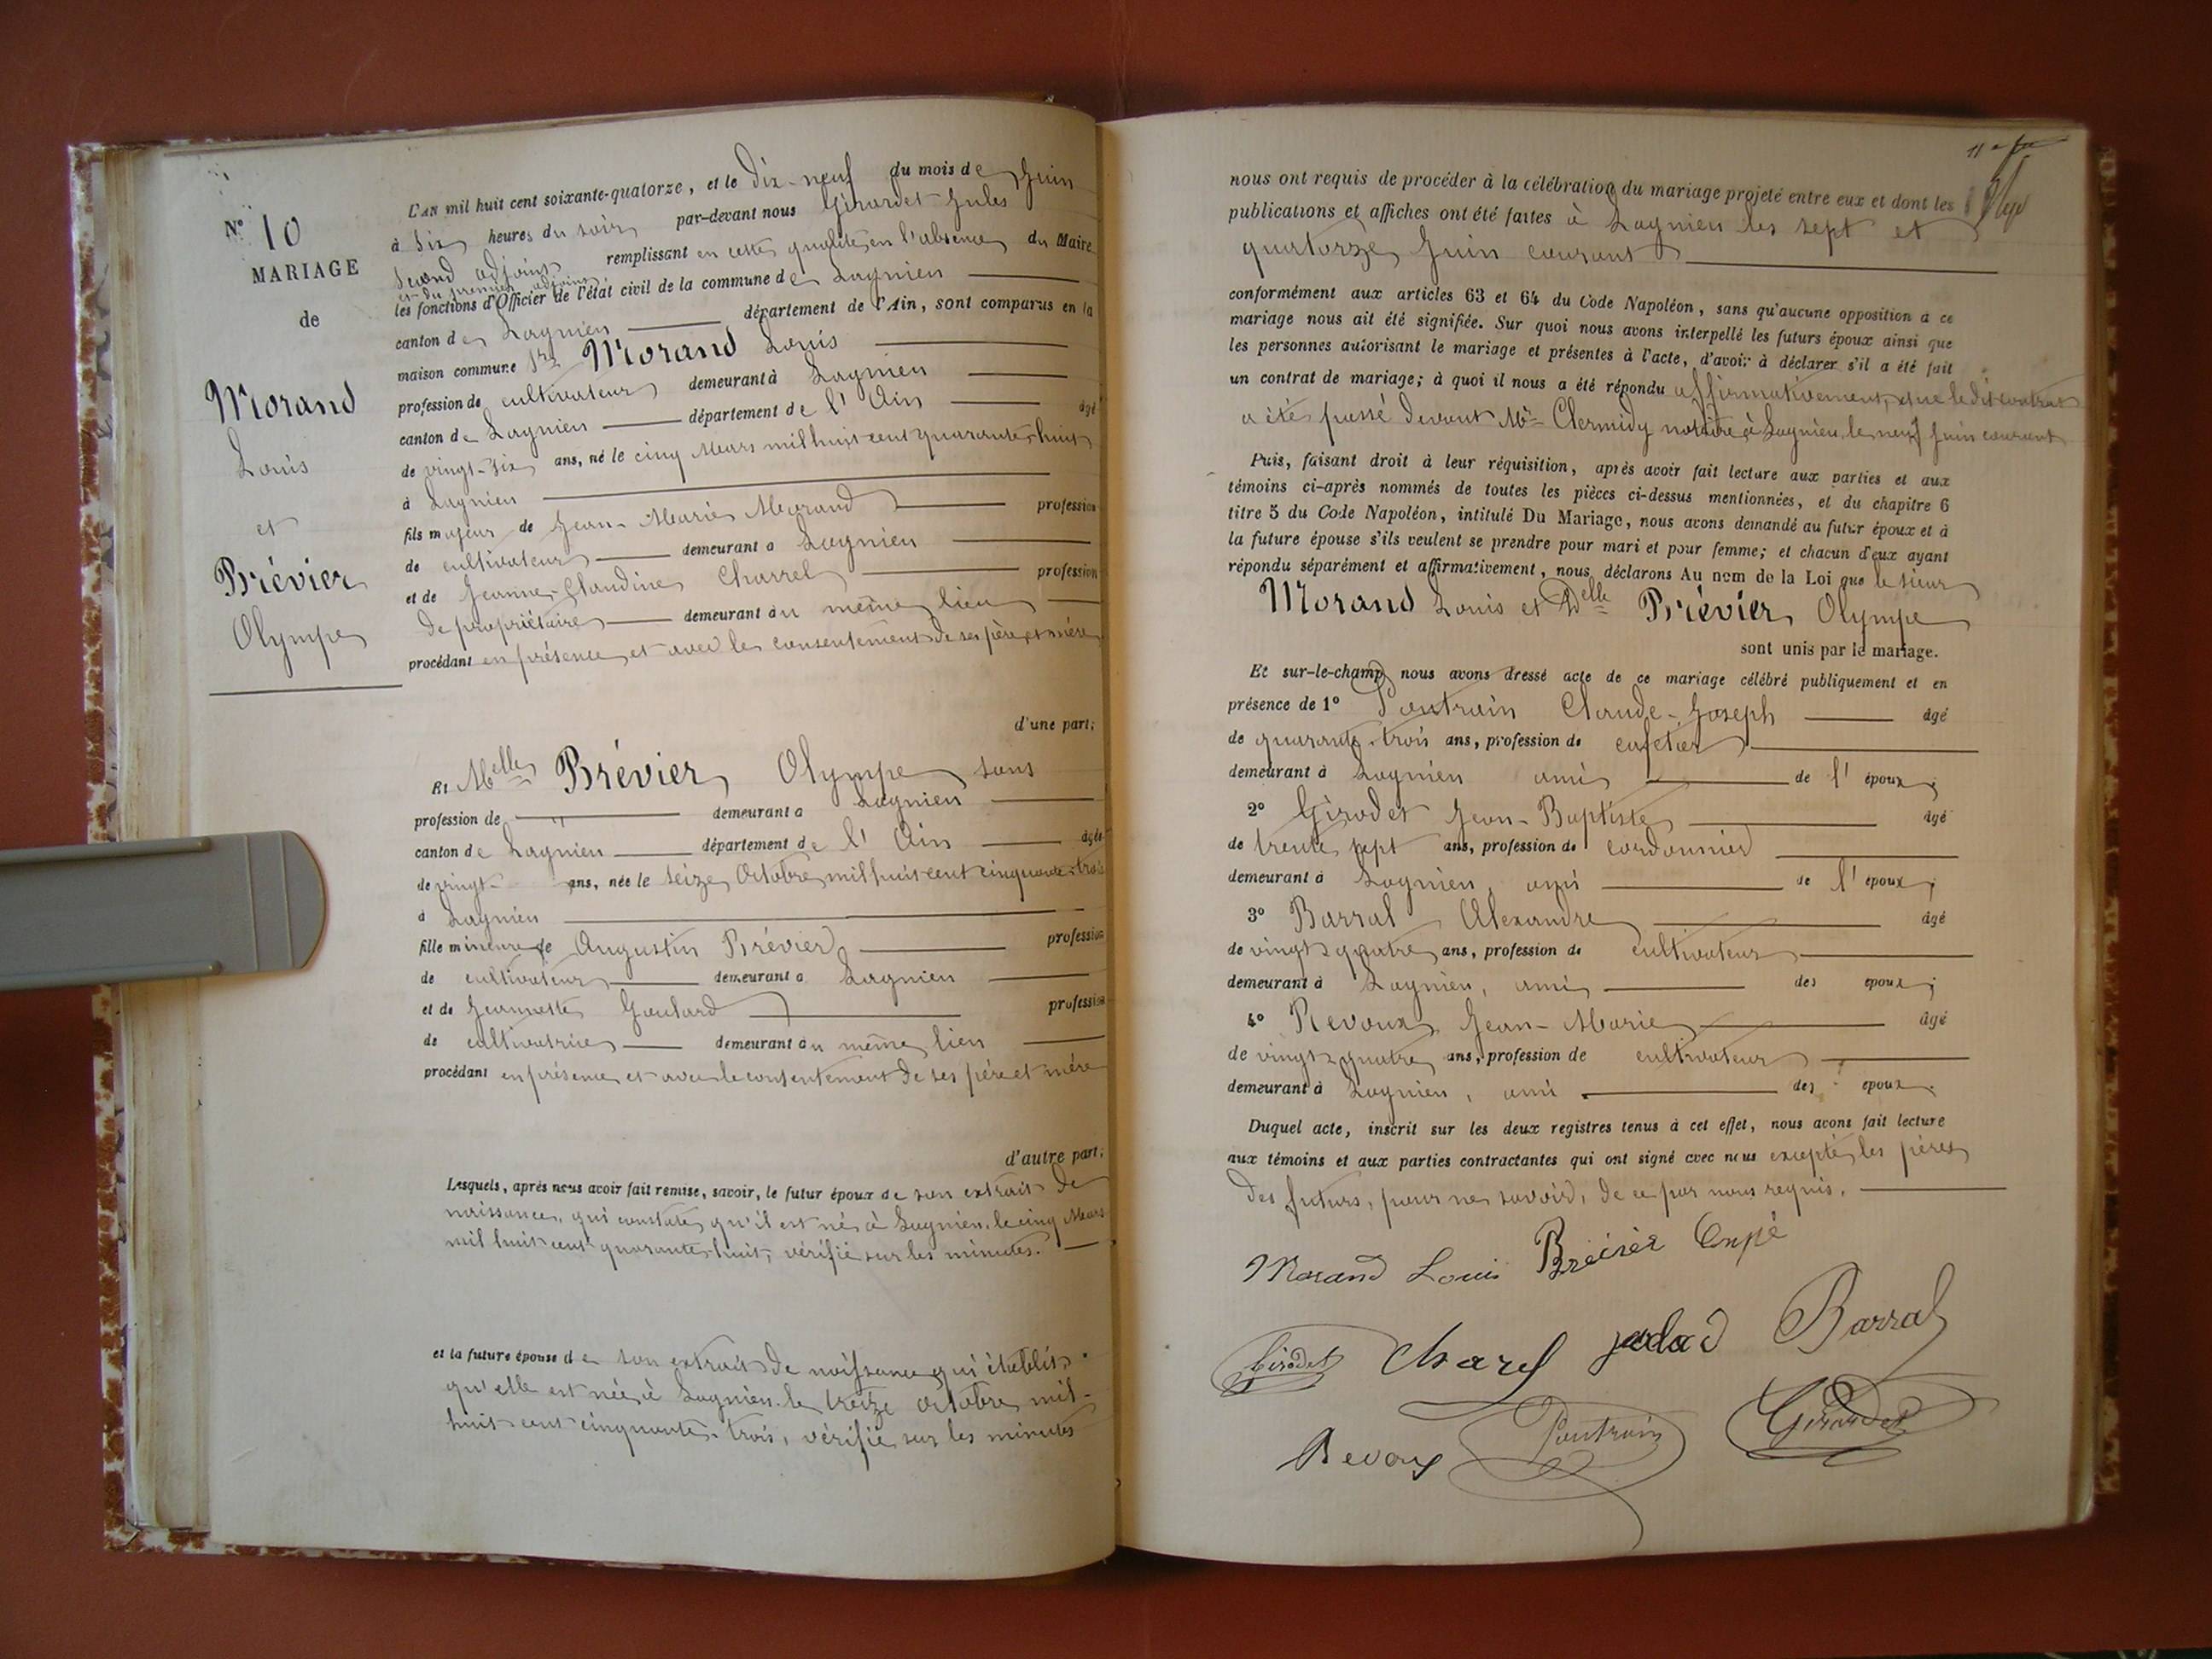 N° 10
MARIAGE
de
Morand
Louis
et
Prévier
Olympe
L'AN mil huit cent soixante-quatorze, et le dix-neuf du mois de Juin
à six heures du soir, par-devant nous Girardet Jules
second adjoint remplissant en cette qualité, en l'absence du Maire
et du premier adjoint
les fonctions d'Officier de l'état civil de la commune de Lagnieu
canton de Lagnieu département de l'Ain, sont comparus en la
maison commune Morand Louis
profession de cultivateur demeurant à Lagnieu
canton de Lagnieu département de l'Ain âgé
de vingt-six ans, né le cinq Mars mil huit cent quarante-huit
à Lagnieu
fils majeur de Jean-Marie Morand profession
de cultivateur demeurant à Lagnieu
et de Jeanne-Claudine Charrel profession
de propriétaire demeurant au même lieu
procédant en présence et avec le consentement de ses père et mère
d'une part;
Et Melle Prévier Olympe sans
profession de " demeurant à Lagnieu
canton de Lagnieu département de l'Ain âgée
de vingt ans, née le seize Octobre mil huit cent cinquante-trois
à Lagnieu
fille mineure de Augustin Prévier profession
de cultivateur demeurant à Lagnieu
et de Jeannette profession
de cultivatrice demeurant au même lieu
procédant en présence et avec le consentement de ses père et mère
d'autre part;
Lesquels, après nous avoir fait remise, savoir, le futur époux de son extrait de
naissance, qui constate qu'il est né à Lagnieu, le cinq Mars
mil huit cent quarante-huit, vérifié sur les minutes.
et la future épouse de son extrait de naissance qui établit
qu'elle est née à Lagnieu le treize octobre mil-
huit cent cinquante-trois, vérifié sur les minutes
nous ont requis de procéder à la célébration du mariage projeté entre eux et dont les
publications et affiches ont été faites à Lagnieu les sept et
quatorze Juin courant
conformément aux articles 63 et 64 du Code Napoléon, sans qu'aucune opposition à ce
mariage nous ait été signifiée. Sur quoi nous avons interpellé les futurs époux ainsi que
les personnes autorisant le mariage et présentes à l'acte, d'avoir à déclarer s'il a été fait
un contrat de mariage; à quoi il nous a été répondu affirmativement, que le dit contrat
a été passé devant Me Clermidy notaire à Lagnieu, le neuf Juin courant
Puis, faisant droit à leur réquisition, après avoir fait lecture aux parties et aux
témoins ci-après nommés de toutes les pièces ci-dessus mentionnées, et du chapitre 6
titre 5 du Code Napoléon, intitulé Du Mariage, nous avons demandé au futur époux et à
la future épouse s'ils veulent se prendre pour mari et pour femme; et chacun d'eux ayant
répondu séparément et affirmativement, nous déclarons Au nom de la Loi que le sieur
Morand Louis et Delle Prévier Olympe
sont unis par le mariage.
Et sur-le-champ nous avons dressé acte de ce mariage célébré publiquement et en
présence de 1° Pautrain Claude-Joseph âgé
de quarante-trois ans, profession de cafetier
demeurant à Lagnieu ami de l'époux;
2° Girodet Jean-Baptiste âgé
de trente sept ans, profession de cordonnier
demeurant à Lagnieu, ami de l'époux;
3° Barral Alexandre âgé
de vingt-quatre ans, profession de cultivateur
demeurant à Lagnieu, ami des époux;
4° Revoux Jean-Marie âgé
de vingt-quatre ans, profession de cultivateur
demeurant à Lagnieu, ami des époux.
Duquel acte, inscrit sur les deux registres tenus à cet effet, nous avons fait lecture
aux témoins et aux parties contractantes qui ont signé avec nous excepté, les pères
des futurs, pour ne savoir, de ce par nous requis.
Morand Louis
Girodet Charel Barral
Revoux Pautrain Girardet